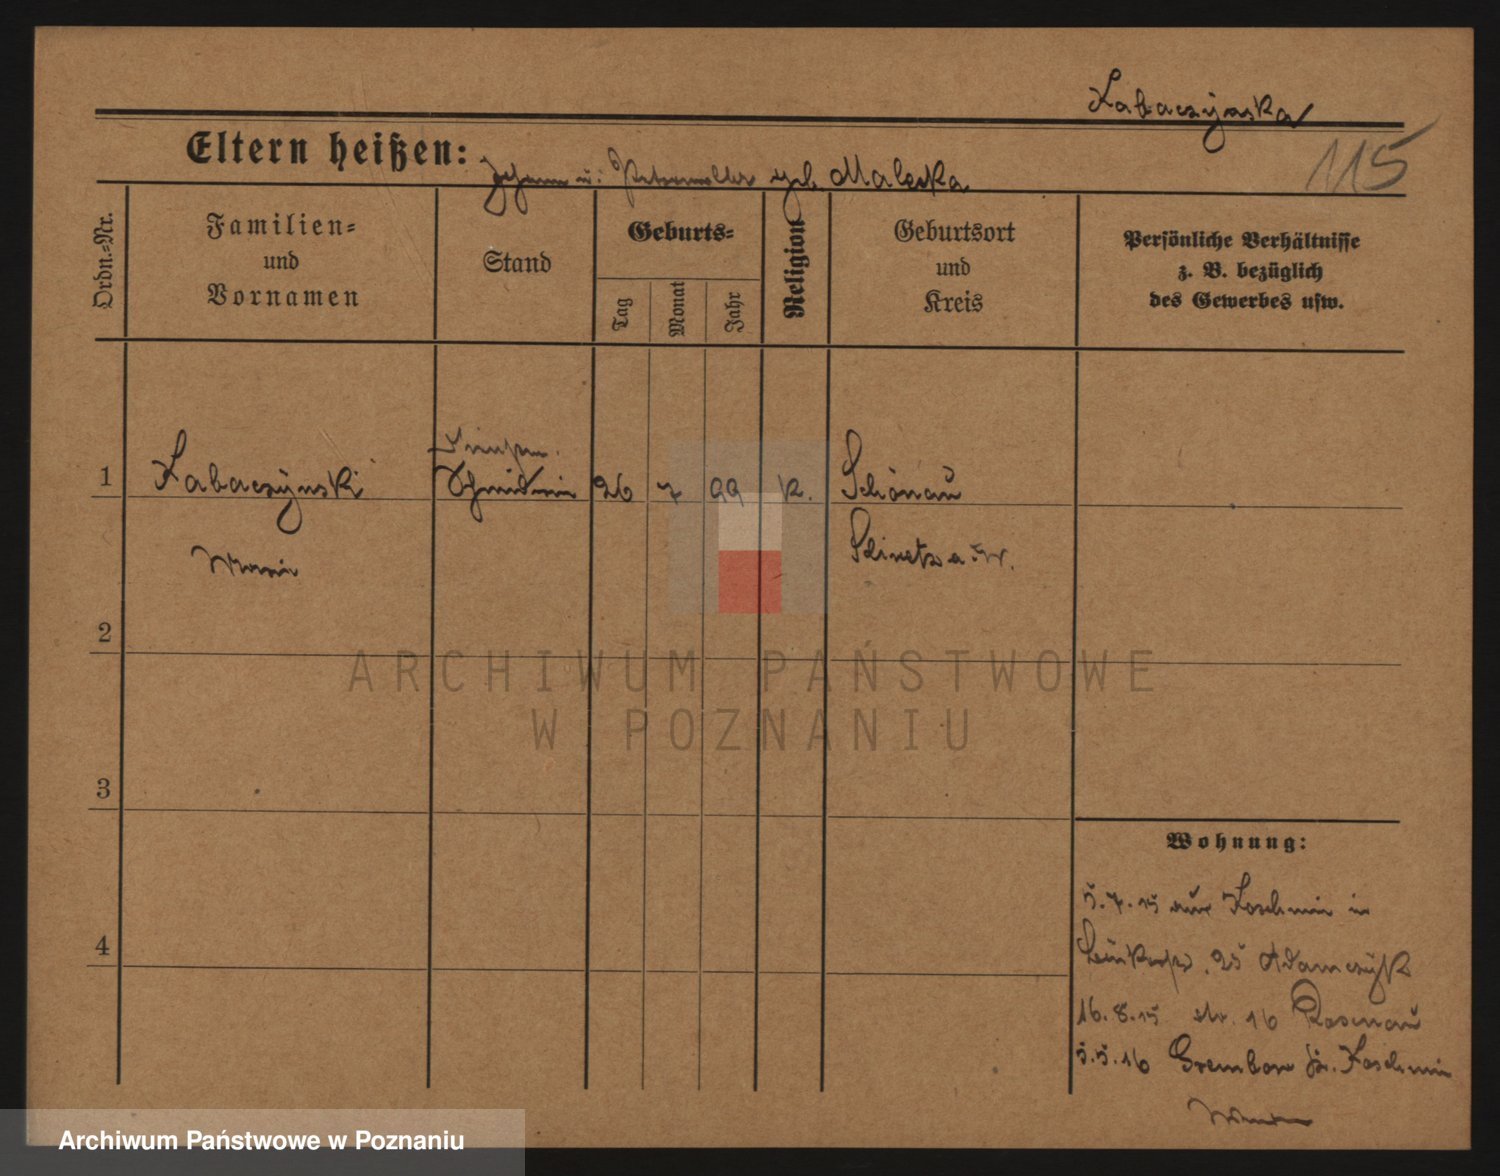 Labaczynska
Eltern heißen: Johann u. geb. Maleska
115
Ordn.-Nr.
Familien-
und
Vornamen
Stand
Geburts-
Tag
Monat
Jahr
Religion
Geburtsort
und
Kreis
Persönliche Verhältnisse
z. B. bezüglich
des Gewerbes usw.
1 Labaczynski 26 7 99 k. Schönau
2
3
4
ARCHIWUM PAŃSTWOWE
W POZNANIU
Wohnung:
5.7.15 aus Koschmin in
25 Adamczyk
16.8.15 str. 16 Rosenau
5.5.16 Grembow Kr. Koschmin
Archiwum Państwowe w Poznaniu